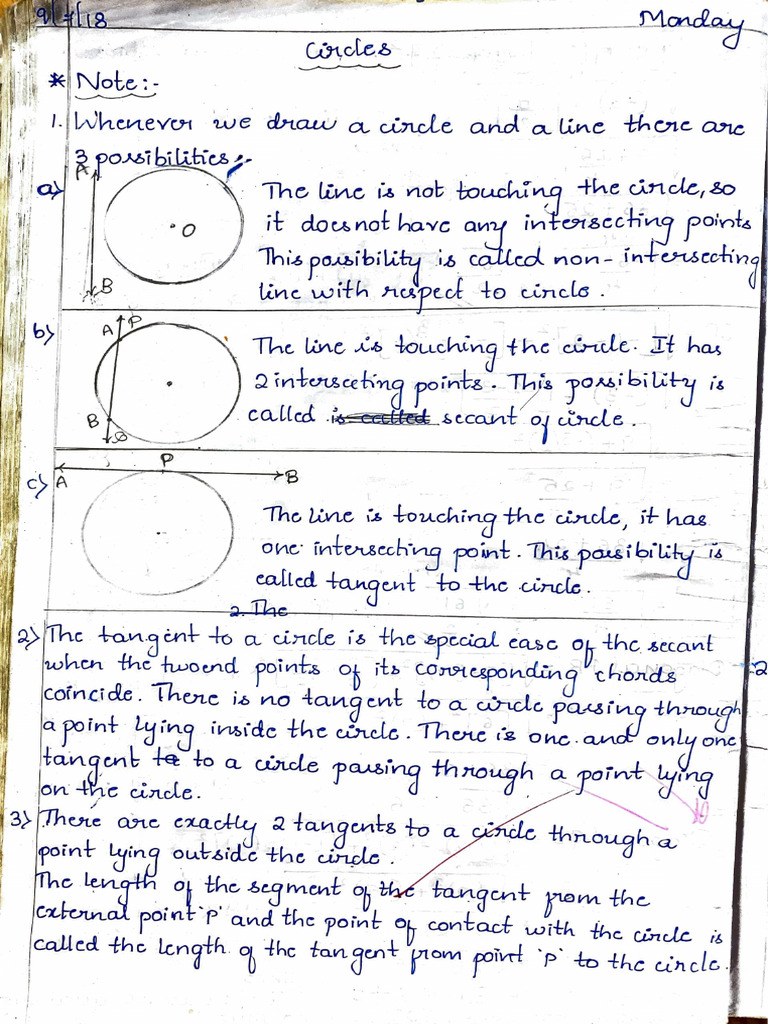 9/7/18 Monday
Circles
* Note:-
1. Whenever we draw a circle and a line there are
3 possibilities:-
a) A
B
O
The line is not touching the circle, so
it doesnot have any intersecting points
This possibility is called non-intersecting
line with respect to circle.
b) A P
B Q
The line is touching the circle. It has
2 intersceting points. This possibility is
called is called secant of circle.
c) A P B
The line is touching the circle, it has
one intersecting point. This possibility is
called tangent to the circle.
2. The
2) The tangent to a circle is the special case of the secant
when the twoend points of its corresponding chords
coincide. There is no tangent to a circle passing through
a point lying inside the circle. There is one and only one
tangent to to a circle passing through a point lying
on the circle.
3) There are exactly 2 tangents to a circle through a
point lying outside the circle.
The length of the segment of the tangent from the
external point 'P' and the point of contact with the circle is
called the length of the tangent from point 'P' to the circle.
2